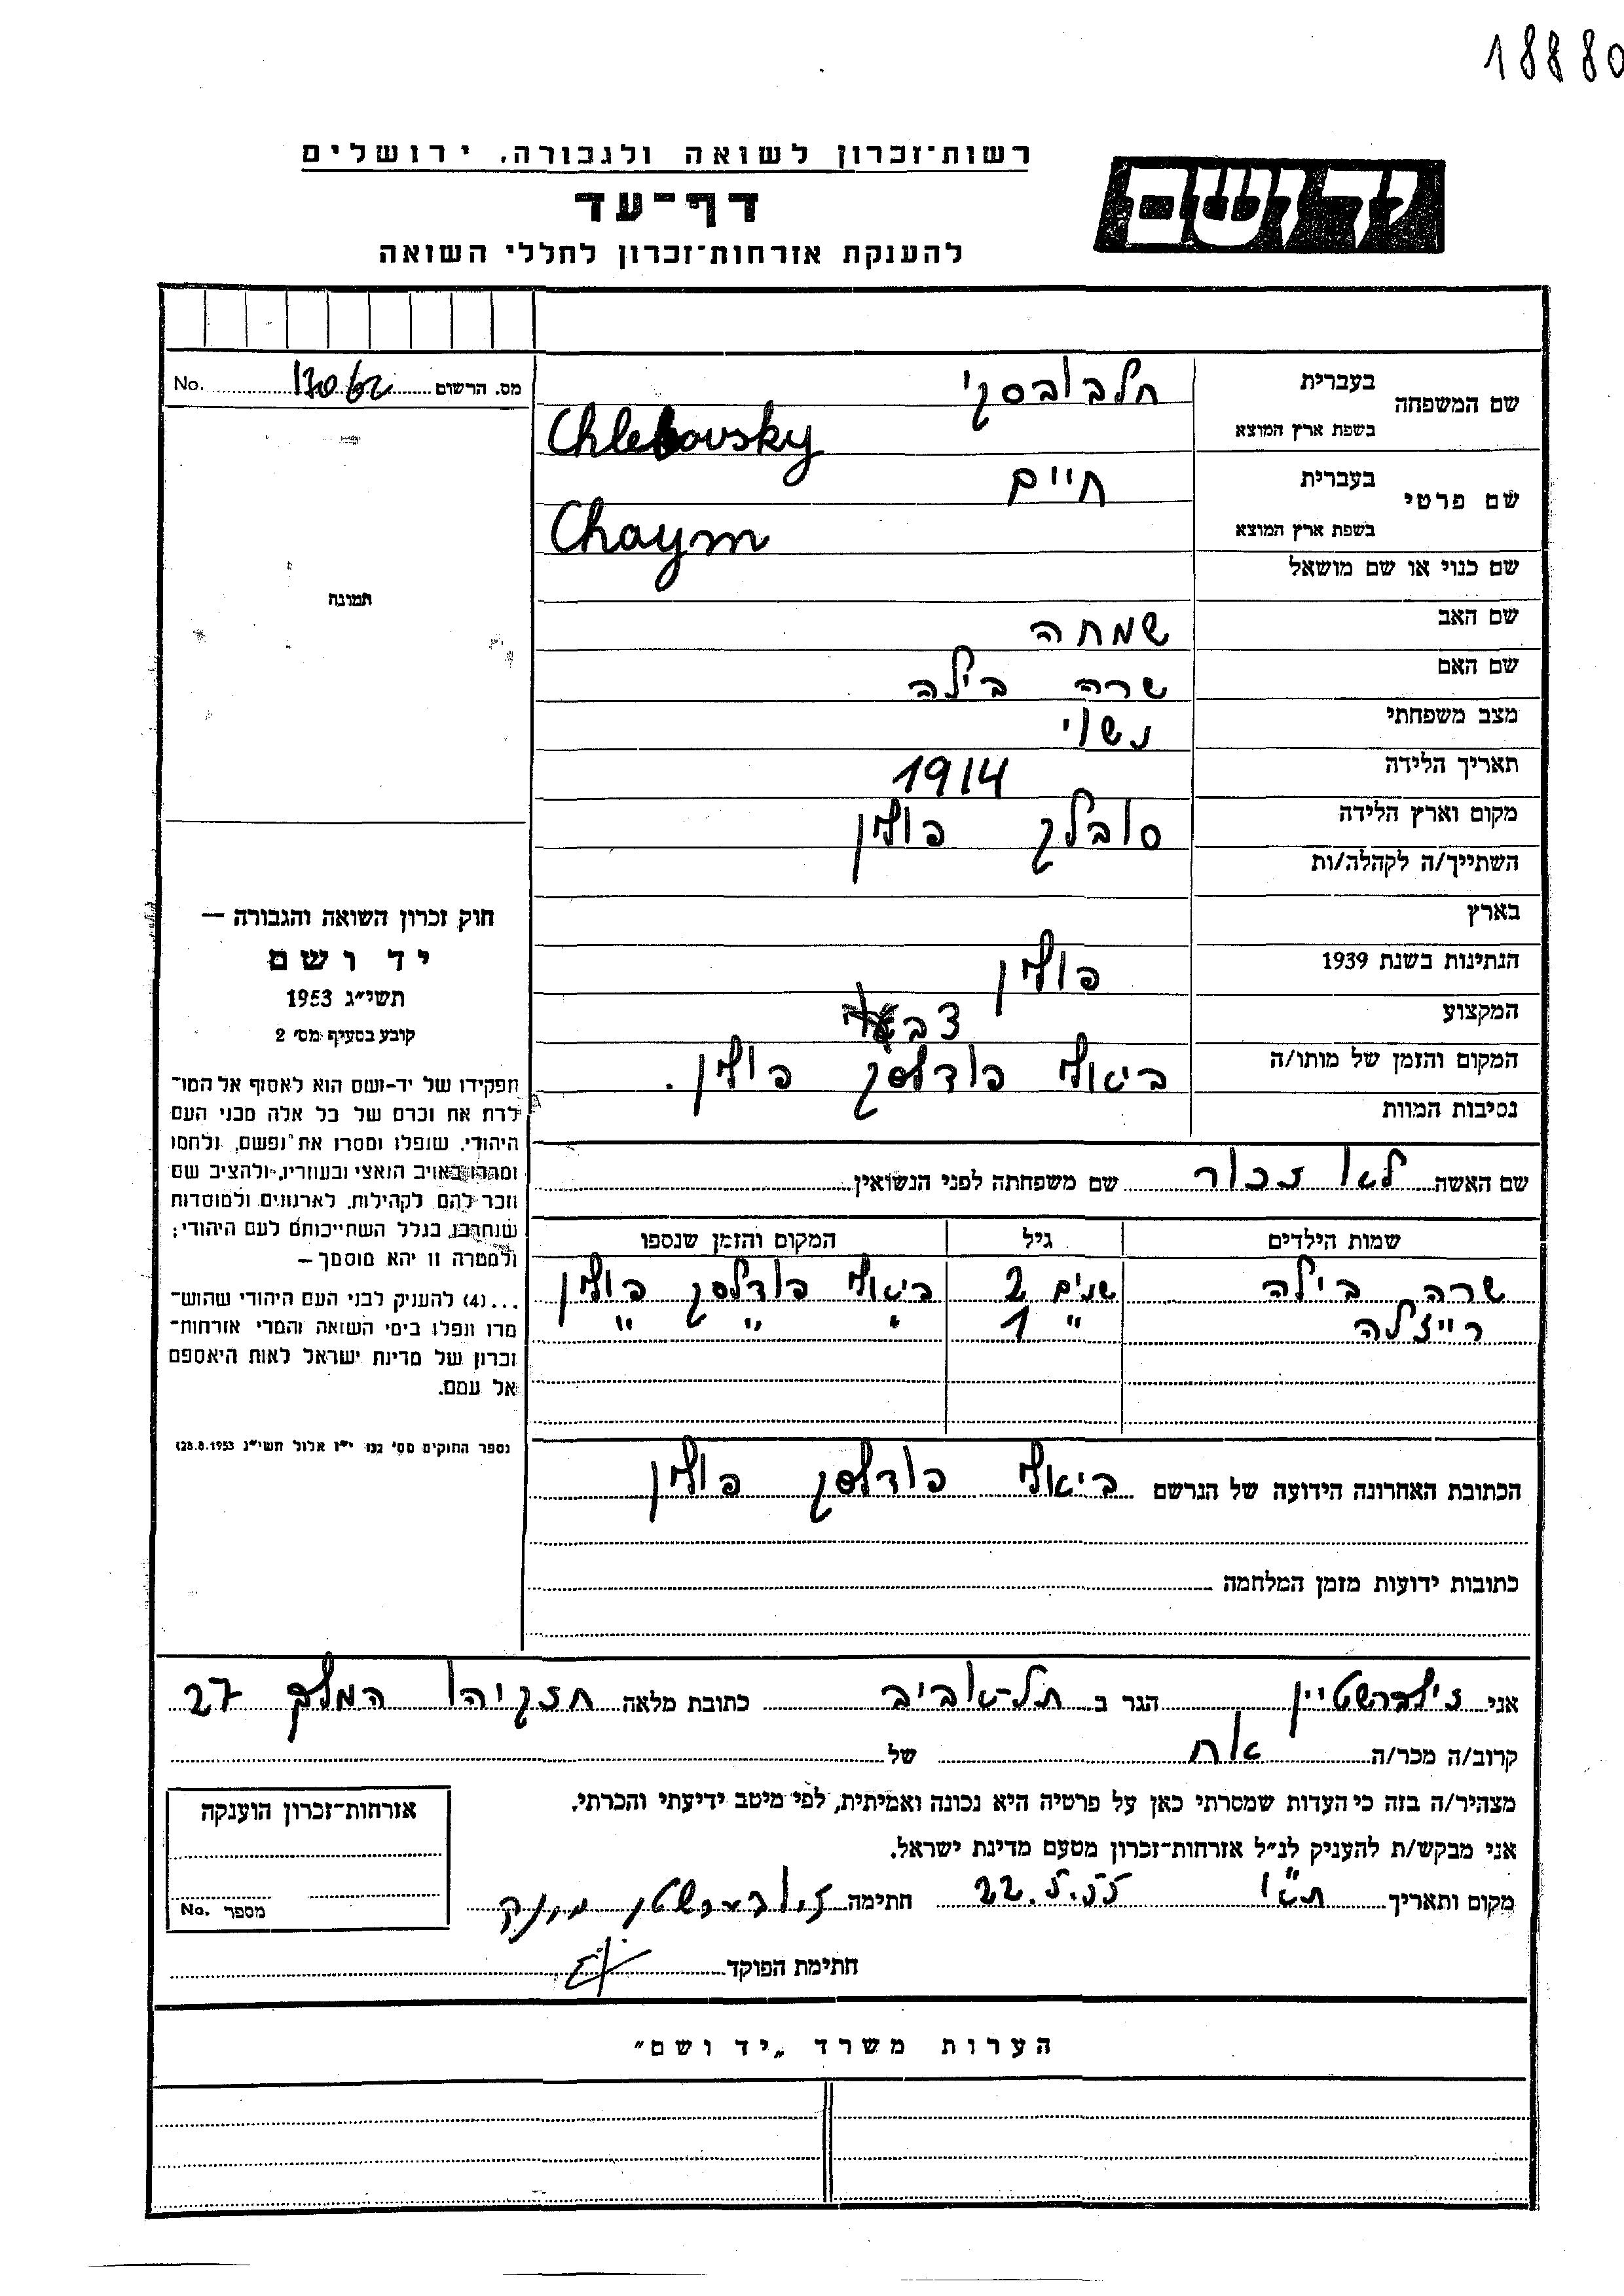 18880
רשות־זכרון לשואה ולגבורה, ירושלים
יד ושם
דף־עד
להענקת אזרחות־זכרון לחללי השואה
מס. הרשום No.
שם המשפחה
בעברית חלבובסקי
בשפת ארץ המוצא Chlebovsky
שם פרטי
בעברית חיים
בשפת ארץ המוצא Chaym
שם כנוי או שם מושאל
שם האב שמחה
שם האם שרה בילה
מצב משפחתי נשוי
תאריך הלידה 1914
מקום וארץ הלידה סובלק פולין
השתייך/ה לקהלה/ות
בארץ
הנתינות בשנת 1939 פולין
המקצוע
המקום והזמן של מותו/ה ביאלה פודלסק פולין.
נסיבות המוות
תמונה
חוק זכרון השואה והגבורה —
יד ושם
תשי״ג 1953
קובע בסעיף מס׳ 2
תפקידו של יד־ושם הוא לאסוף אל המו־
לדת את זכרם של כל אלה מבני העם
היהודי, שנפלו ומסרו את נפשם, נלחמו
ומרדו באויב הנאצי ובעוזריו, ולהציב שם
וזכר להם לקהילות, לארגונים ולמוסדות
שנחרבו בגלל השתייכותם לעם היהודי;
ולמטרה זו יהא מוסמך —
...(4) להעניק לבני העם היהודי שהוש־
מדו ונפלו בימי השואה והמרי אזרחות־
זכרון של מדינת ישראל לאות היאספם
אל עמם.
שם האשה לא זכור שם משפחתה לפני הנשואין
שמות הילדים גיל המקום והזמן שנספו
שרה בילה 2 שנים ביאלה פודלסק פולין
רייזלה 1 " " " "
הכתובת האחרונה הידועה של הנרשם ביאלה פודלסק פולין
כתובות ידועות מזמן המלחמה
אני זילברשטיין הגר ב תל־אביב כתובת מלאה חזקיהו המלך 27
קרוב/ה מכר/ה אח של
מצהיר/ה בזה כי העדות שמסרתי כאן על פרטיה היא נכונה ואמיתית, לפי מיטב ידיעתי והכרתי.
אני מבקש/ת להעניק לנ״ל אזרחות־זכרון מטעם מדינת ישראל.
מקום ותאריך 22.5.55 חתימה
חתימת הפוקד
אזרחות־זכרון הוענקה
מספר No.
הערות משרד „יד ושם”